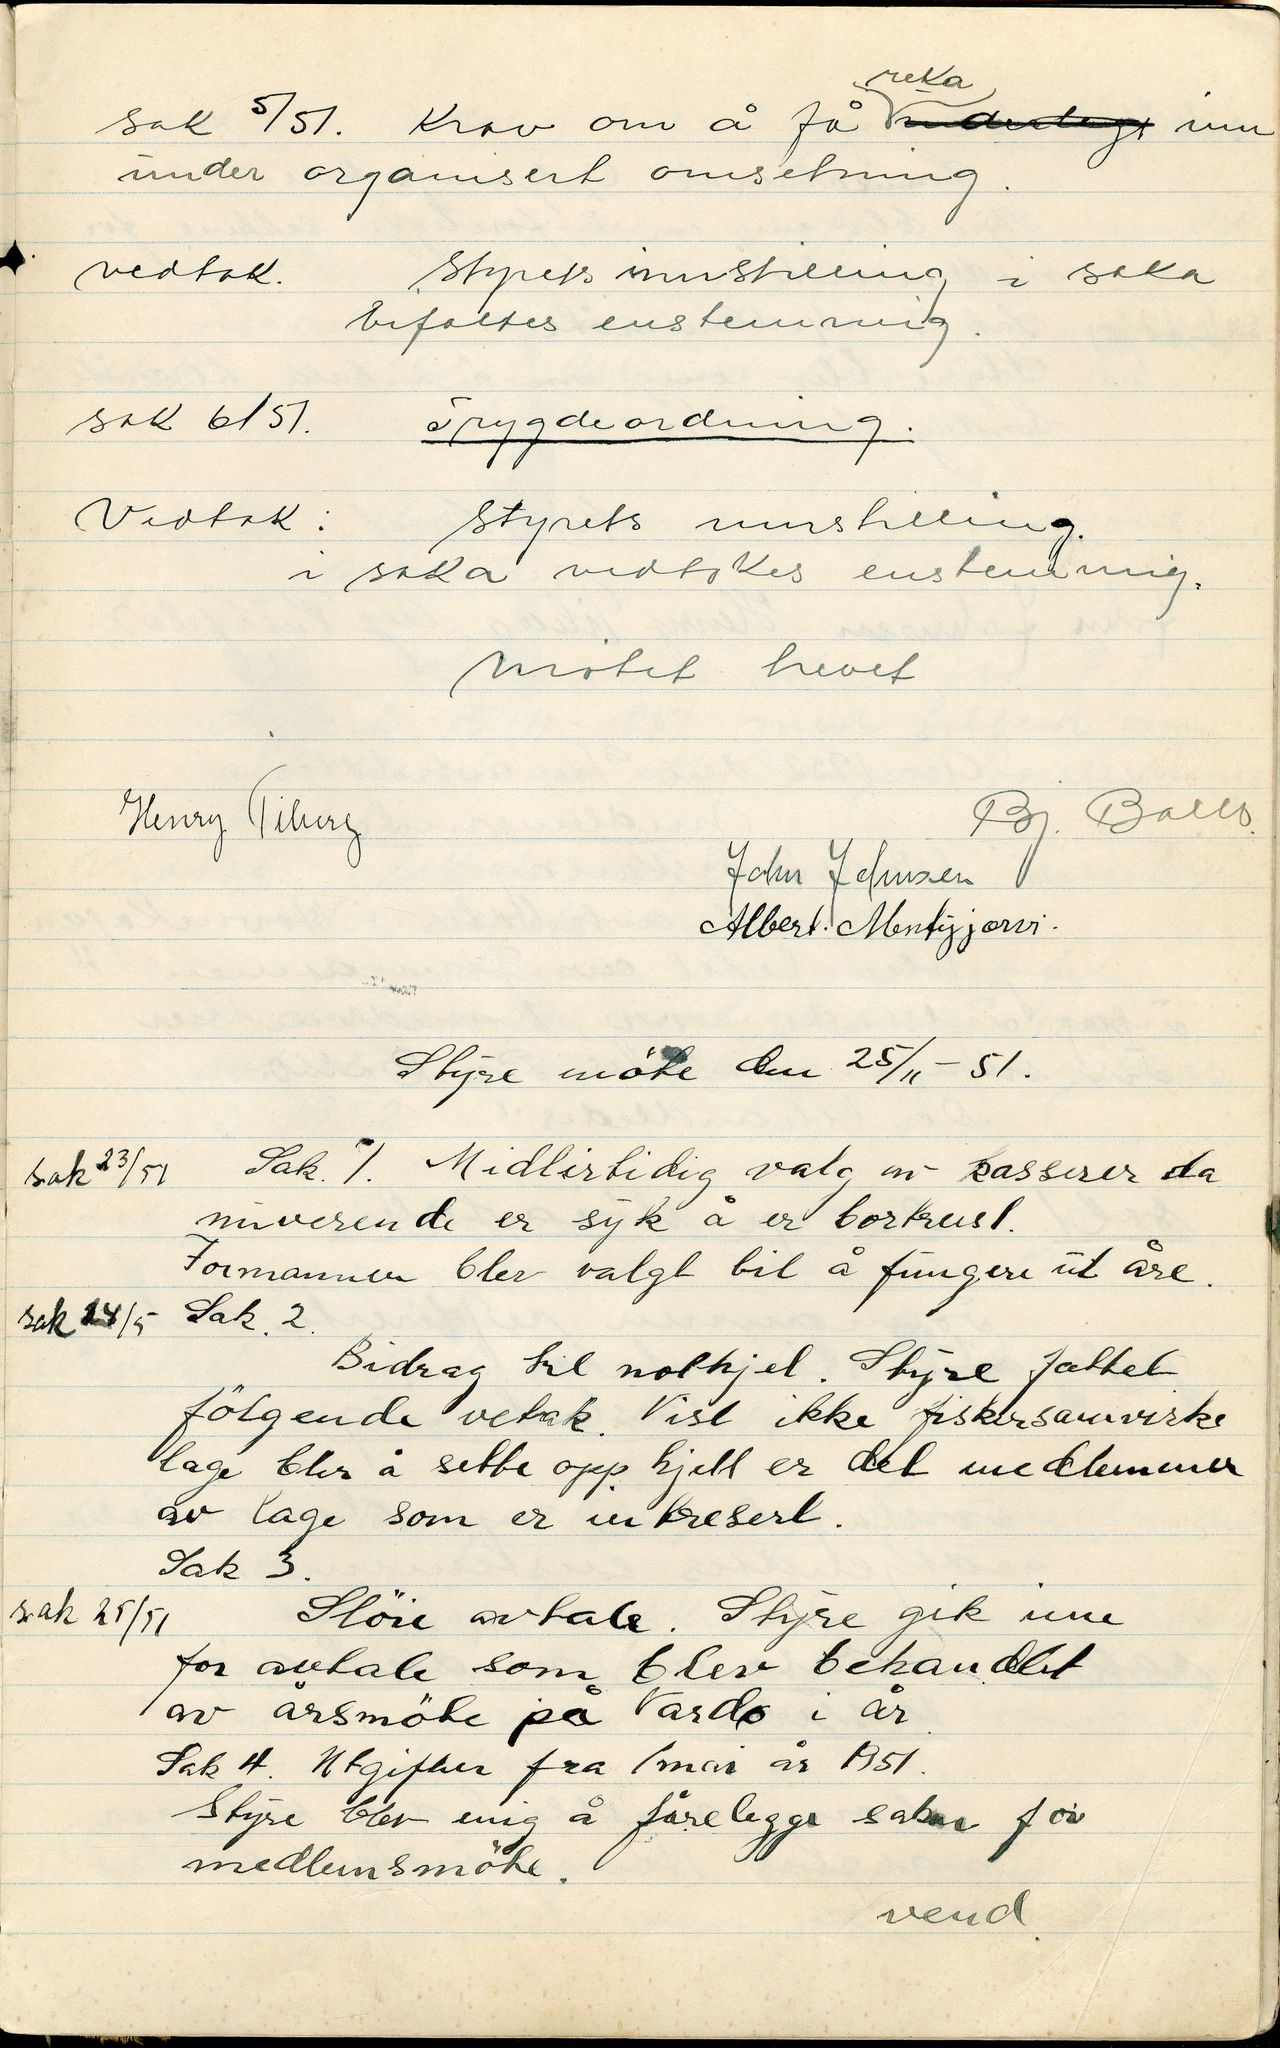 reka
sak 5/51. Krav om å få underlagt inn
under organisert omsetning.
vedtak. Styrets innstilling i saka
bifaltes enstemmig.
sak 6/51. Trygdeordning.
Vedtak: Styrets innstilling.
i saka vedtokes enstemmig.
Møtet hevet
Henry Tiberg Bj. Ballo.
John Johnsen
Albert.
Styre möte den 25/11 - 51.
sak 23/51 Sak. 1. Midlirtidig valg av kasserer da
nuverende er syk å er bortreist.
Formannen blev valgt til å fungere ut åre.
sak 24/5 Sak. 2.
Bidrag til nothjel. Styre fattet
fölgende vetak. Vist ikke fiskersamvirke
lage blir å sette opp hjell er det medlemmer
av lage som er intresert.
Sak 3.
sak 25/51 Slöie avtale. Styre gik inn
for avtale som blev behandlet
av årsmöte på Vardø i år
Sak 4. Utgifter fra 1 mai år 1951.
Styre blev enig å fårelegge saken for
medlemsmöte.
vend